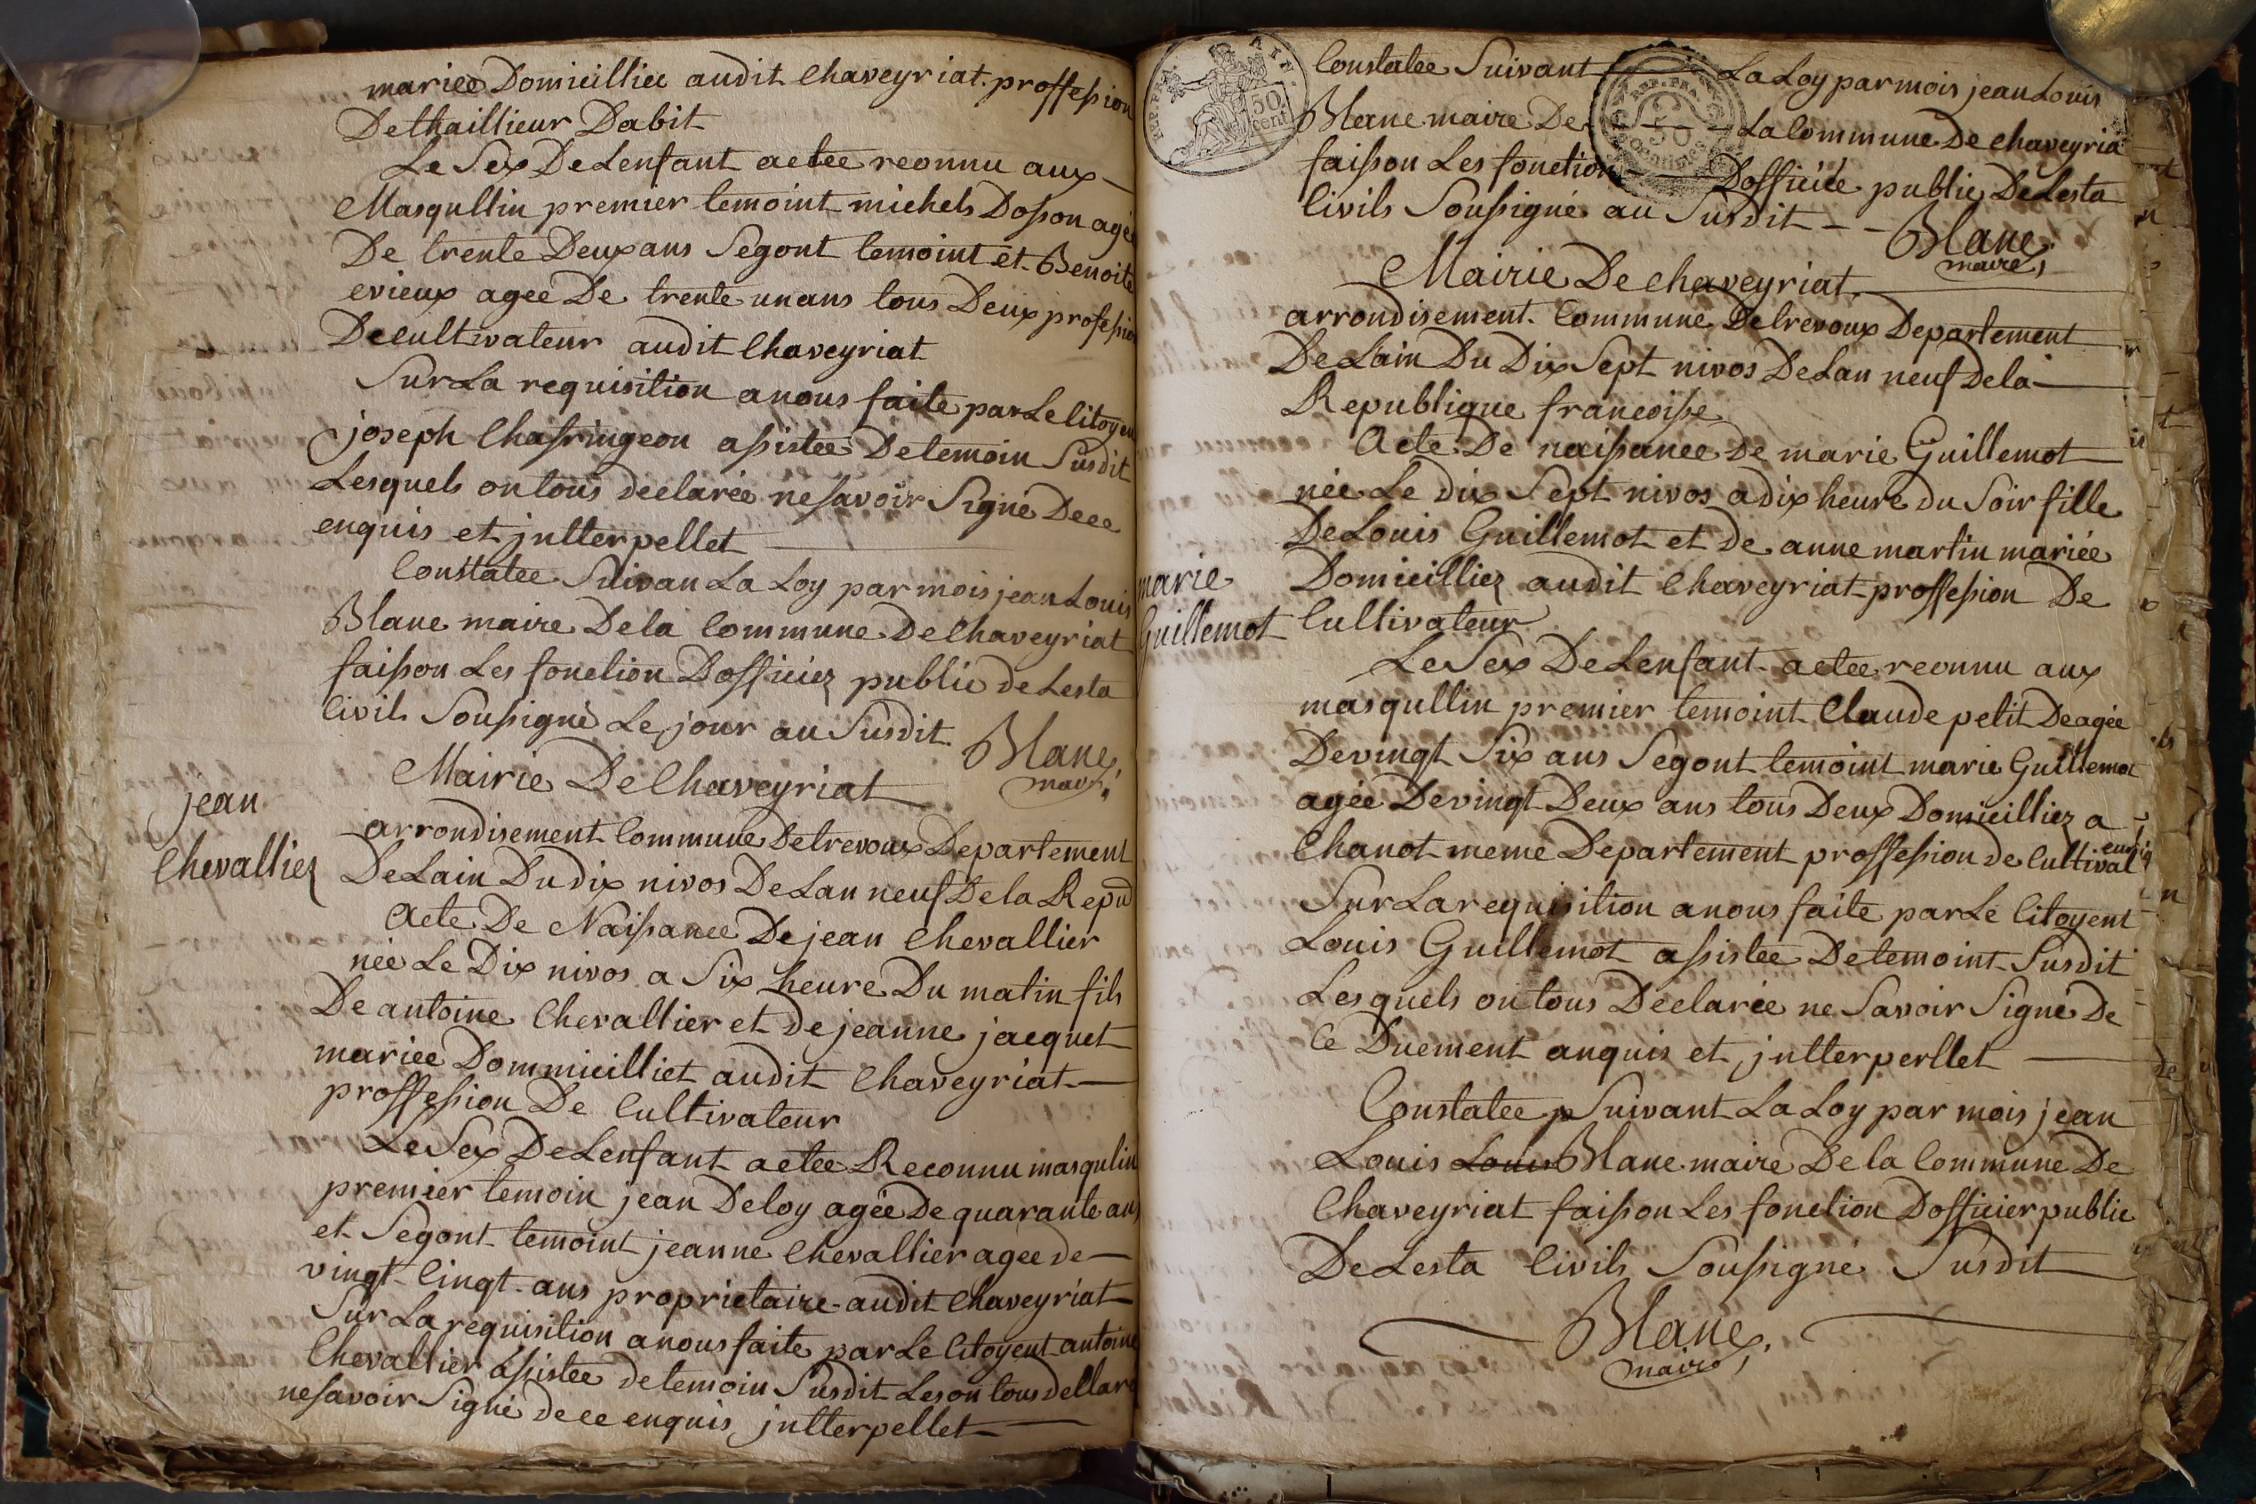 mariee Domicilliee audit Chaveyriat. proffession
De thaillieur Dabit
Le Sex De Lenfant aetee reonnu aux
Masqullin premier temoint michels Dosson agée
De trente Deux ans Segont temoint et Benoite
evieux agee De trente un ans tous Deux profession
De Cultivateur audit Chaveyriat
Sur La requisition a nous faite par Le Citoyen
joseph Chassringeon assistee De temoin Susdit
Lesquels on tous declarée ne savoir Signé De ce
enquis et jnlterpellet
Constatee Suivan La Loy par mois jean Louis
Blanc maire De la Commune De Chaveyriat
faisson Les fonction Dofficiez public de Lesta
Civils Soussigné Le jour au Susdit.
Blanc,
maire
Mairie De Chaveyriat
jean
Chevalliez
arrondisement Commune De trevoux Departement
De Lain Du dix nivos De Lan neuf De la Repub
Acte De Naissance De jean Chevallier
née Le Dix nivos a Six heure Du matin fils
De antoine Chevallier et de jeanne jacquet
mariee Dommicilliet audit Chaveyriat
proffession De Cultivateur
Le Sex De Lenfant aetee Reconnu masqulin
premier temoin jean Deloy agée De quarante ans
et Segont temoint jeanne Chevallier agee de
vingt Cingt ans proprietaire audit Chaveyriat
Sur La requisition a nous faite par Le Citoyent antoine
Chevallier assistee de temoin Susdit Les on tous dellare
ne savoir Signé de ce enquis jnlterpellet
REP. FRA. AIN.
50
cent.
REP. FRA.
50
Centimes
Constatee Suivant La Loy par mois jean Louis
Blanc maire De La Commune De Chaveyria
faisson Les fonction Dofficiée public De Lesta
Civils Soussigné au Susdit
Blanc
maire
Mairie De Chaveyriat
arrondisement Commune De trevoux Departement
De Lain Du Dix Sept nivos De Lan neuf De la
Republique francoisse
Acte De naissance De marie Guillemot
née Le dix Sept nivos a dix heure du Soir fille
De Louis Guillemot et de anne martin mariée
marie
Guillemot
Domicilliez audit Chaveyriat proffession De
Cultivateur
Le Sex De Lenfant aetee reonnu aux
masqullin premier temoint Claude petit De agée
De vingt Six ans Segont temoint marie Guillemot
agée De vingt Deux ans tous Deux Domicilliez a
Chanot meme Departement proffession de Cultivateur
Sur La requisition a nous faite par Le Citoyent
Louis Guillemot assistee De temoint Susdit
Lesquels on tous Declarée ne Savoir Signé De
Ce Duement anquis et jnlterperllet
Constatee Suivant La Loy par mois jean
Louis Louis Blanc maire De la Commune De
Chaveyriat faisson Les fonction Dofficier public
De Lesta Civils Soussigné Susdit
Blanc,
maire